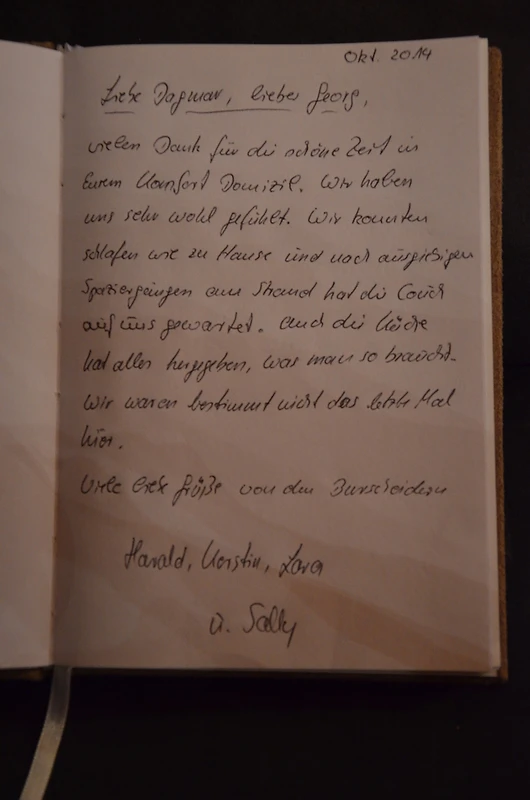 Okt. 2014
Liebe Dagmar, lieber Georg,
vielen Dank für die schöne Zeit in
Eurem Komfort Domizil. Wir haben
uns sehr wohl gefühlt. Wir konnten
schlafen wie zu Hause und nach ausgiebigen
Spaziergängen am Strand hat die Couch
auf uns gewartet. Auch die Küche
hat alles hergegeben, was man so braucht.
Wir waren bestimmt nicht das letzte Mal
hier.
Viele liebe Grüße von den Burscheidern
Harald, Kerstin, Lara
u. Sally